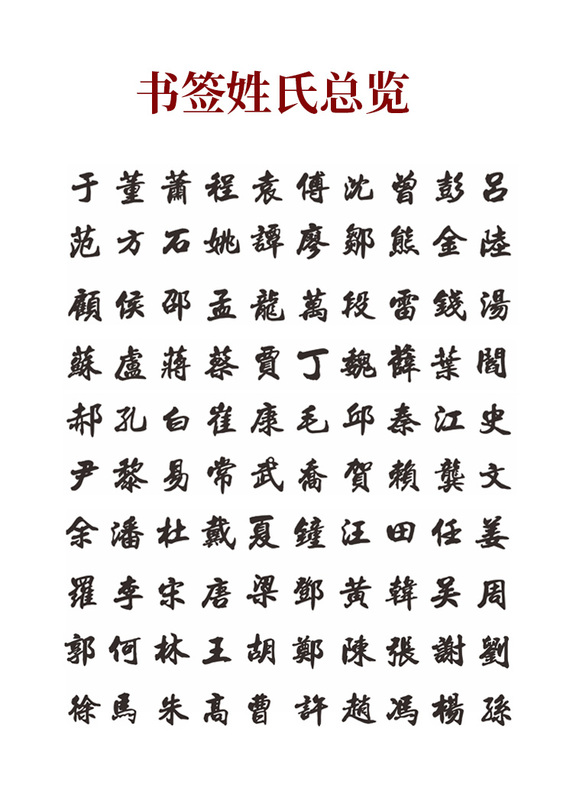 书签姓氏总览
于董蕭程袁傅沈曾彭呂
范方石姚譚廖鄒熊金陸
顧侯邵孟龍萬段雷錢湯
蘇盧蔣蔡賈丁魏薛葉閻
郝孔白崔康毛邱秦江史
尹黎易常武喬賀賴龔文
余潘杜戴夏鐘汪田任姜
羅李宋唐梁鄧黃韓吴周
郭何林王胡鄭陳張謝劉
徐馬朱高曹許趙馮楊孫